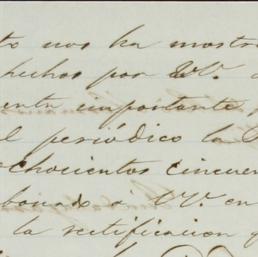 to nos ha mostr
hechos por V.
enta importante,
el periódico la
chocientos cincuen
bonado á V. en
la rectificacion q